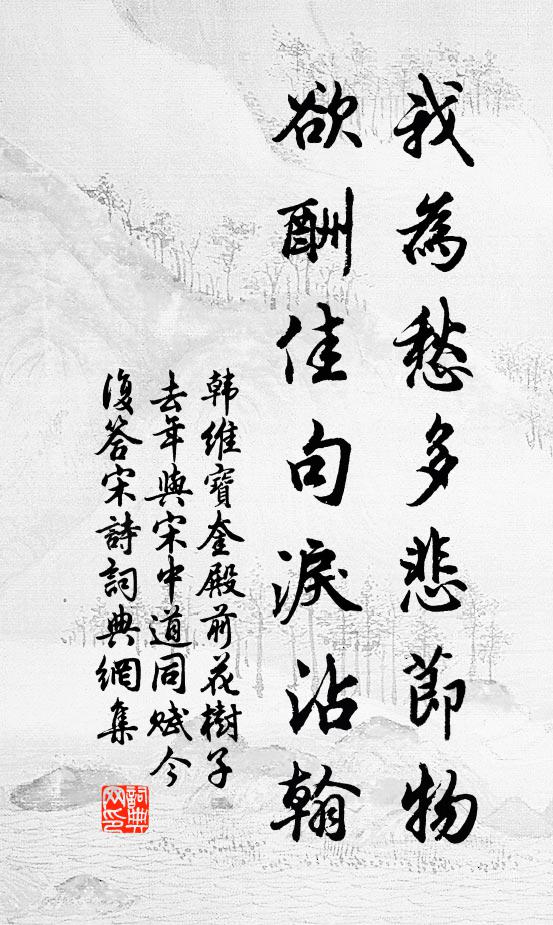 我為愁多悲節物
欲酬佳句淚沾翰
韩维寶奎殿前花樹子
去年與宋中道同賦今
復答宋詩詞典網集
詞典
网印